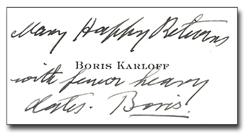 Many Happy Returns
BORIS KARLOFF
with fewer heavy
dates. Boris.